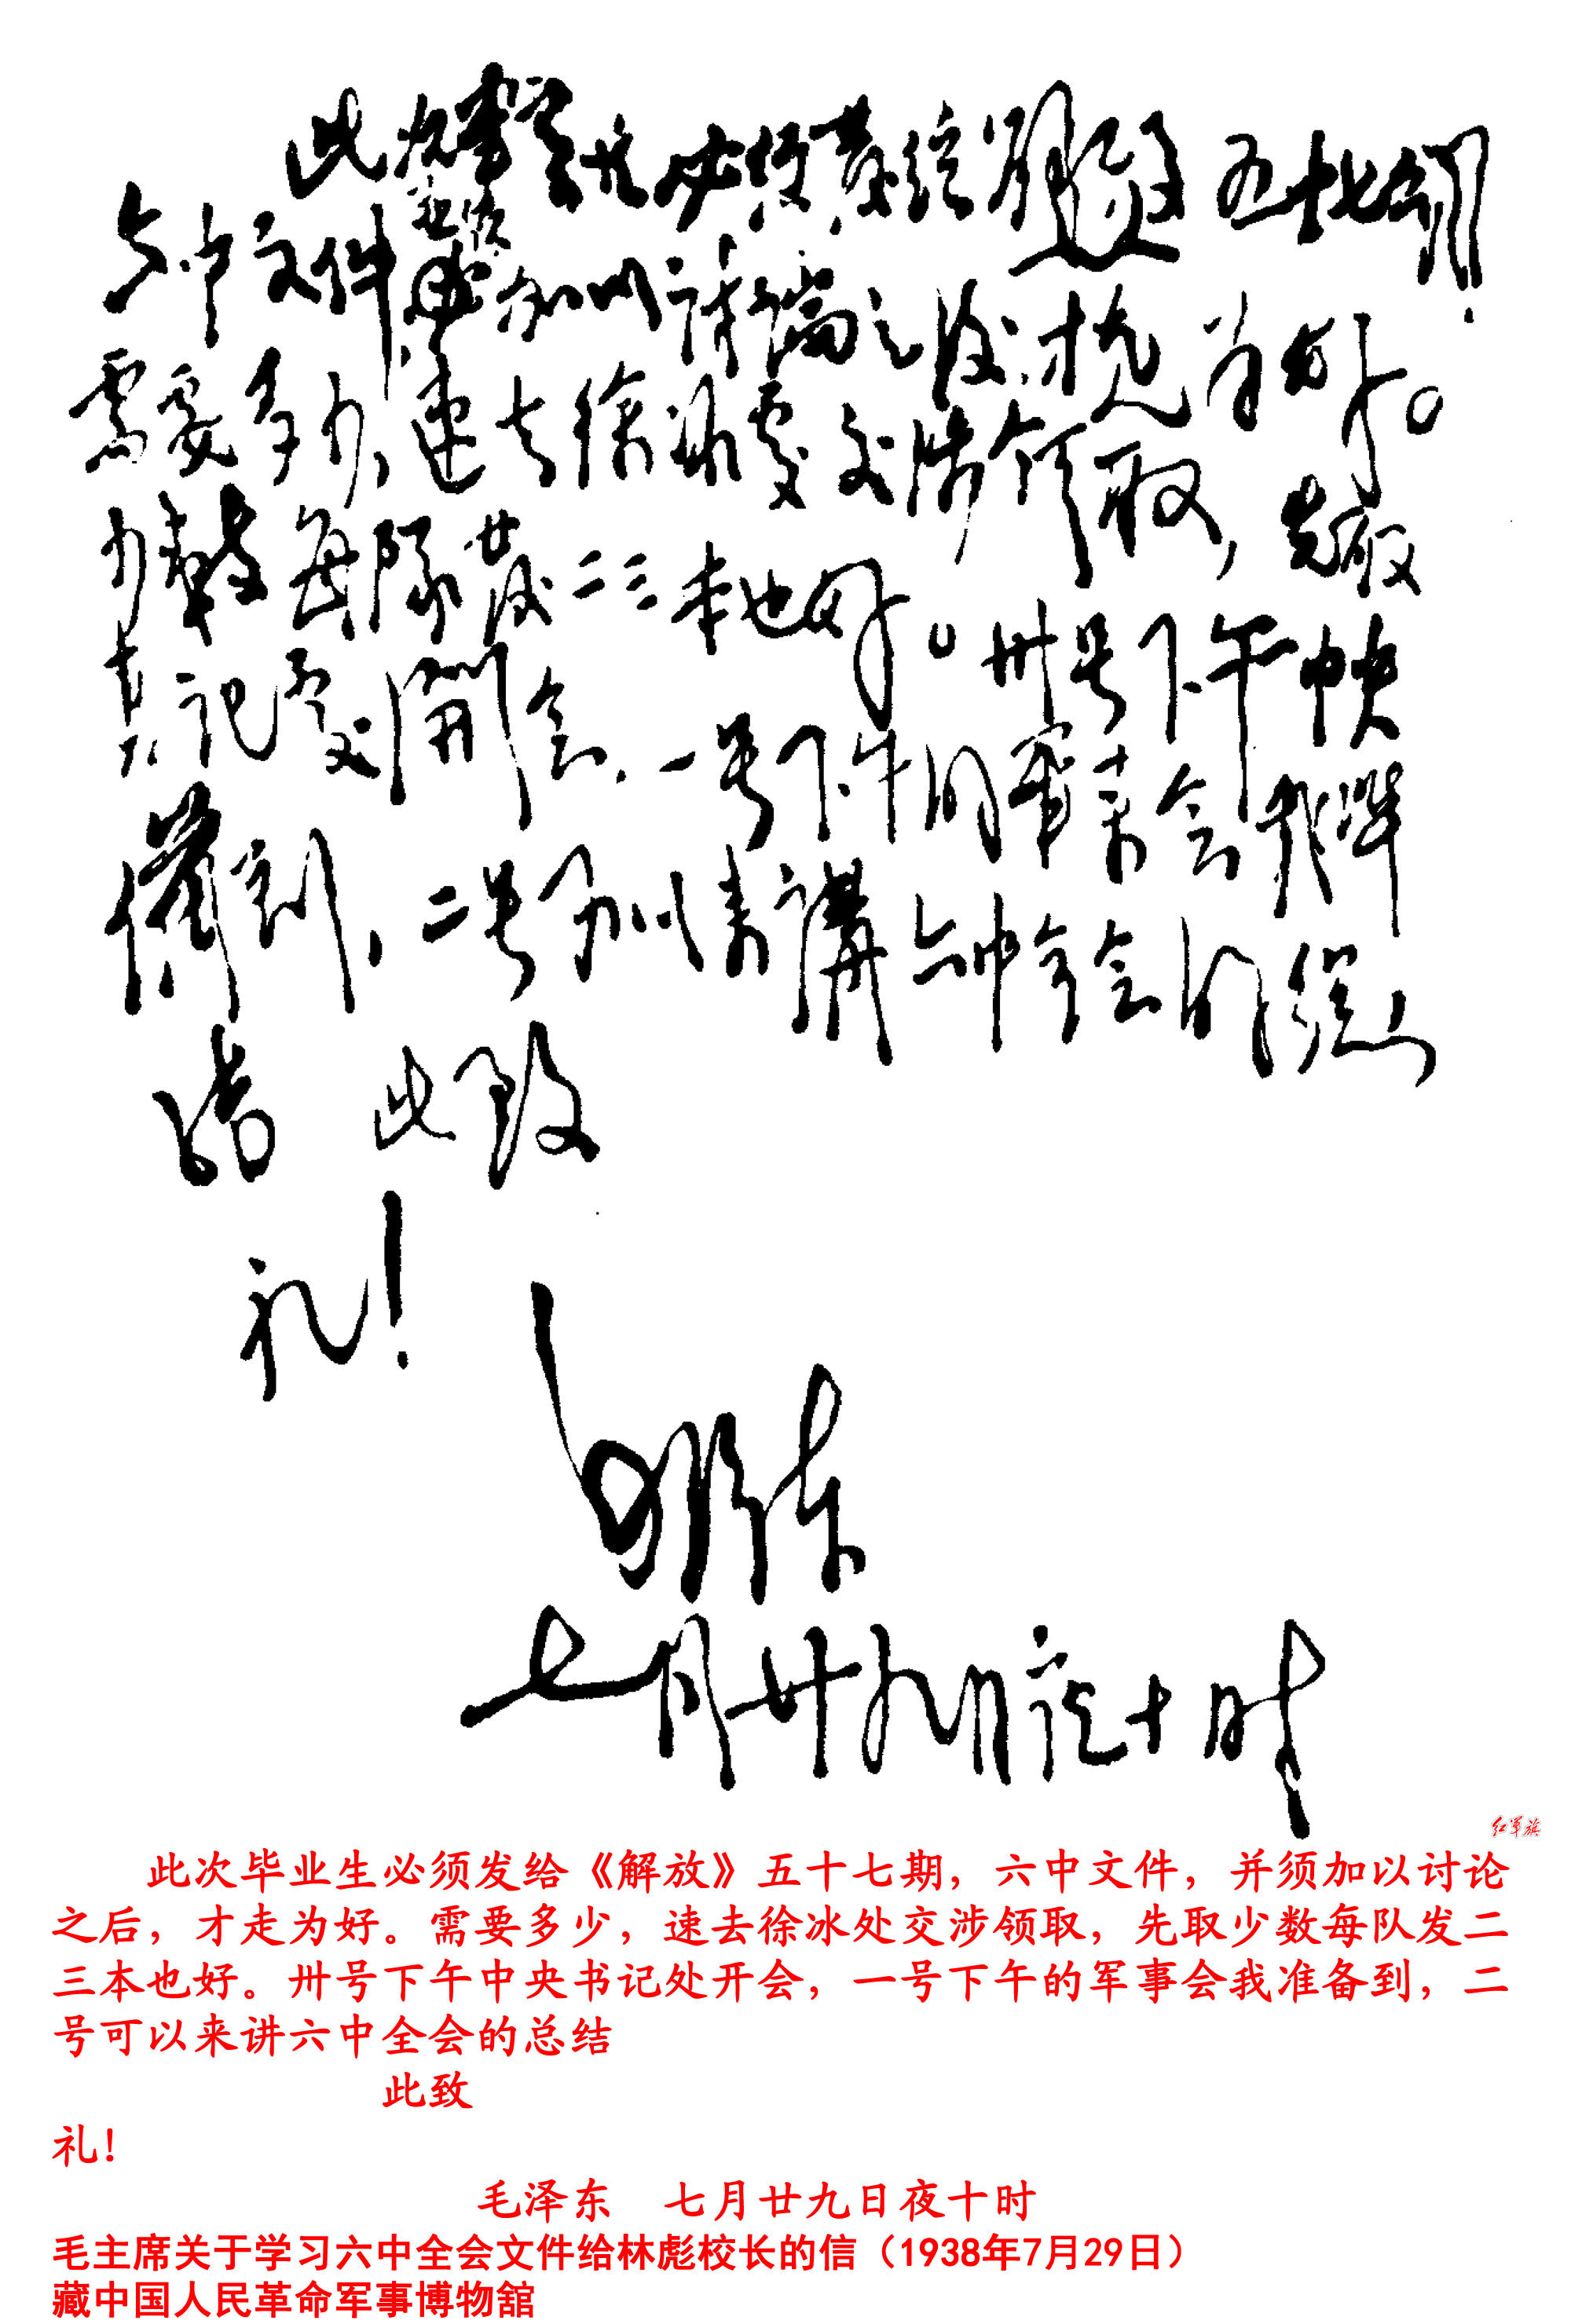 此次毕业生必须发给解放五十七期
六中文件，并须加以讨论之后，才走为好。
需要多少，速去徐冰处交涉领取，先取
少数每队发二三本也好。卅号下午中央
书记处开会，一号下午的军事会我准
备到，二号可以来讲六中全会的总
结 此致
礼！
泽东
七月廿九日夜十时
红军旗
此次毕业生必须发给《解放》五十七期，六中文件，并须加以讨论
之后，才走为好。需要多少，速去徐冰处交涉领取，先取少数每队发二
三本也好。卅号下午中央书记处开会，一号下午的军事会我准备到，二
号可以来讲六中全会的总结
此致
礼！
毛泽东 七月廿九日夜十时
毛主席关于学习六中全会文件给林彪校长的信（1938年7月29日）
藏中国人民革命军事博物舘